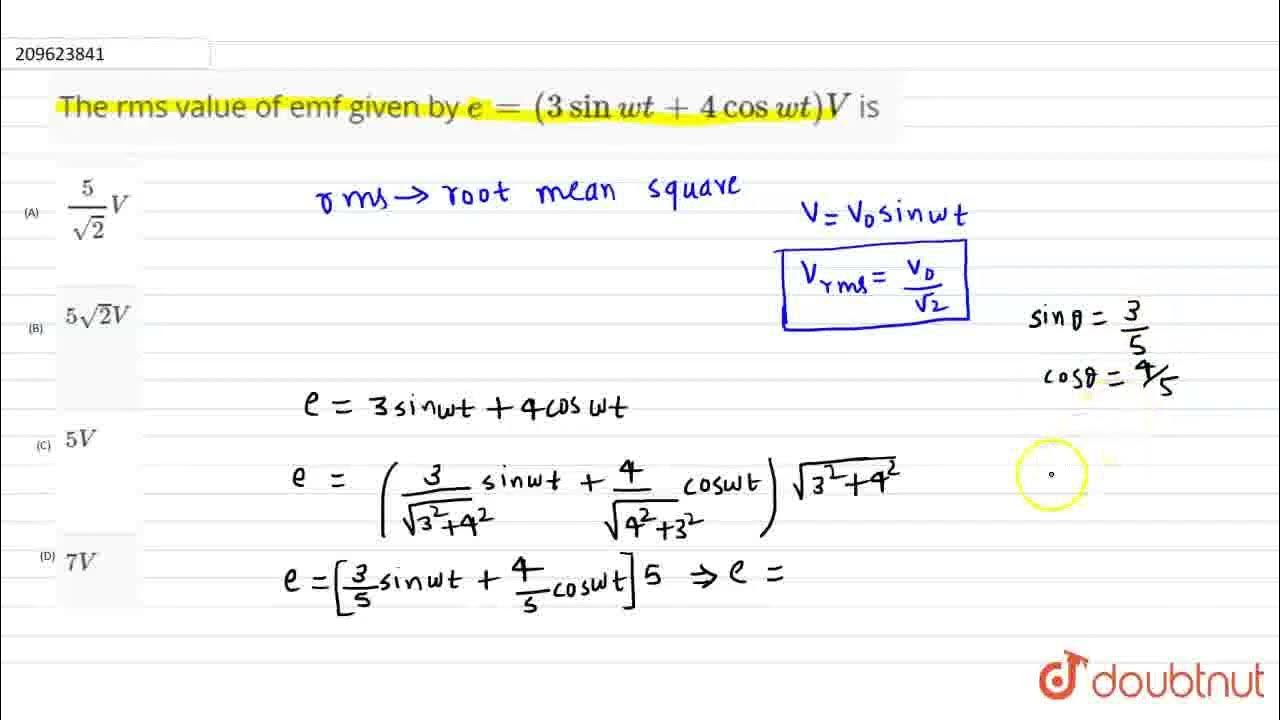 209623841
The rms value of emf given by e = (3 sin wt + 4 cos wt)V is
(A) 5/√2 V
rms → root mean square
V = V₀ sinωt
Vrms = V₀/√2
(B) 5√2V
sinθ = 3/5
cosθ = 4/5
e = 3 sinωt + 4 cos ωt
(C) 5V
e = (3/√3²+4² sinωt + 4/√4²+3² cosωt) √3²+4²
(D) 7V
e = [3/5 sinωt + 4/5 cosωt] 5 ⇒ e =
doubtnut